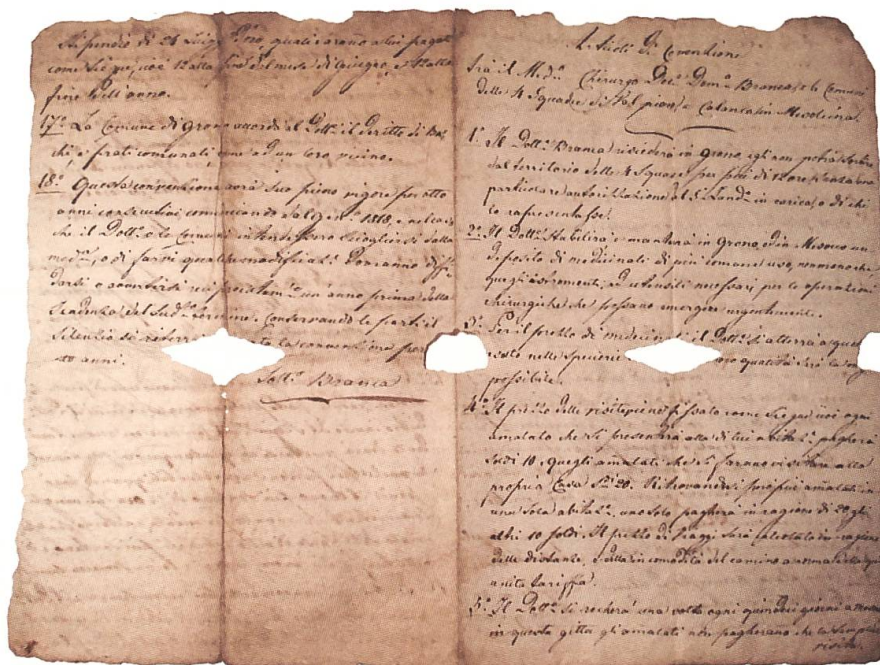 stipendio di 24 Luigi d'oro, quali saranno a lui pagati
come segue, cioè 12 alla fine del mese di Giugno, e 12 alla
fine dell'anno.
17.º La Comune di Grono accorda al Dott.e il diritto di
chi, e prati comunali, come ad un loro vicino.
18.º Questa convenzione avrà suo pieno vigore per otto
anni consecutivi cominciando dal 1818, e nel caso
che il Dott.e o le Comuni intendessero sciogliersi dalla
med.ma, o di farvi qualche modifica dovranno
darsi o scambiarsi un anno prima della
scadenza del sud.o termine. Conservando le parti il
silenzio si riterrà la convenzione per
anni.
Sott.o Branca
Articoli di Convenzione
frà il Med.o Chirurgo Dott.e Dom.o Branca, e le Comuni
delle 4 Squadre di Calanca in Mesolcina.
1.º Il Dott.e Branca risiederà in Grono, egli non potrà sortire
dal territorio delle 4 Squadre per più di 12 ore senza una
particolare autorizzazione del S.r Land.o in carica, o di chi
lo rapresentasse.
2.º Il Dott.e stabilirà e manterà in Grono, od in Mesocco un
deposito di medicinali di più comune uso, nonmenoche
quegli istromenti, ed utensili necessari per le operazioni
chirurgiche che possano emergere urgentemente.
3.º Per il prezzo di medicinali il Dott.e si atterrà a quel
costo nelle Spezierie oro qualità sarà la
possibile.
4.º Il prezzo delle visite viene fissato come segue: cioè ogni
amalato che si presenterà alla di lui abitaz.e pagherà
soldi 10, quegli amalati che si faranno visitare alla
propria Casa S.di 20. Ritrovandosi più amalati in
una sola abitaz.e uno solo pagherà in ragione di 20 gli
altri 10 soldi. Il prezzo di viaggi sarà calcolato in ragione
delle distanze, e dalla incomodità del camino a norma della qui
unita tariffa.
5.º Il Dott.e si recherà una volta ogni quindici giorni a
in questa gitta gli amalati non pagherano che la semplice
visita.